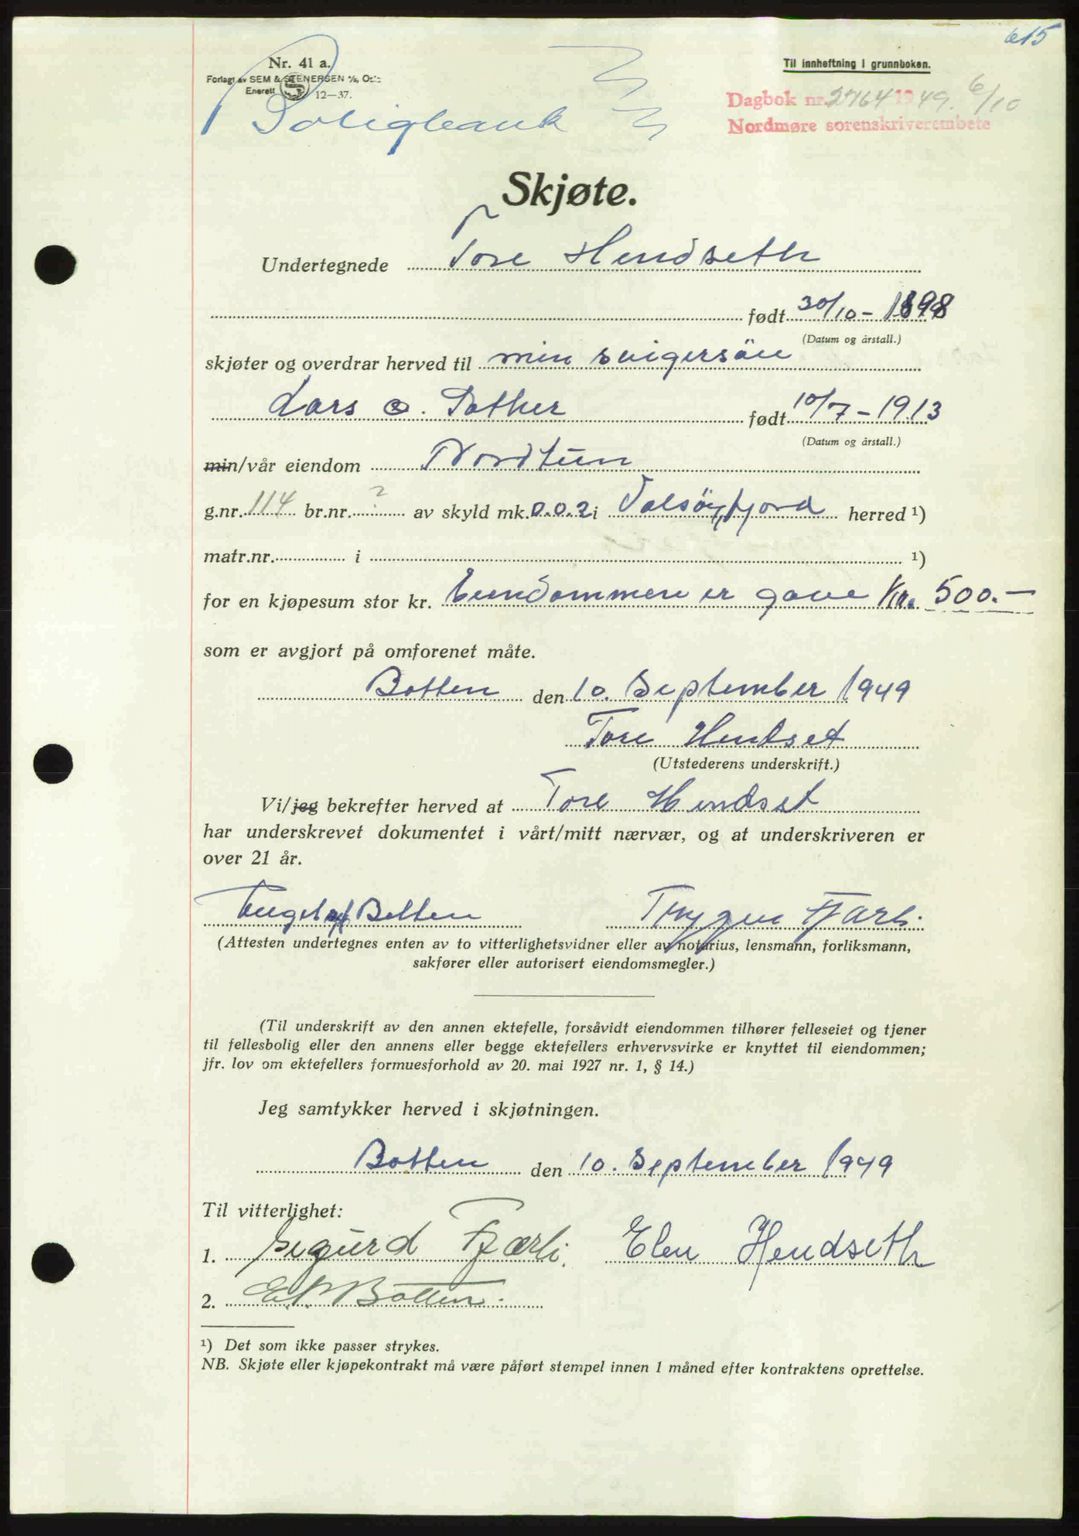 615
Nr. 41 a.
Forlagt av SEM & STENERSEN A/S, Oslo
Enerett 12—37.
Til innheftning i grunnboken.
Dagbok nr. 2764 1949. 6/10
Nordmøre sorenskriverembete
Boligbank
Skjøte.
Undertegnede Tore Hendseth
født 30/10 - 1898
(Datum og årstall.)
skjøter og overdrar herved til min svigersön
Lars O. Sæther født 10/7 - 1913
(Datum og årstall.)
min/vår eiendom Nordtun
g.nr. 114 br.nr. ? av skyld mk. 0.02 i Valsöyfjord herred ¹)
matr.nr. i ¹)
for en kjøpesum stor kr. Eiendommen er gave Kr. 500.—
som er avgjort på omforenet måte.
Botten den 10. September 1949
Tore Hendset
(Utstederens underskrift.)
Vi/jeg bekrefter herved at Tore Hendset
har underskrevet dokumentet i vårt/mitt nærvær, og at underskriveren er
over 21 år.
Botten Trygve Fjærli
(Attesten undertegnes enten av to vitterlighetsvidner eller av notarius, lensmann, forliksmann,
sakfører eller autorisert eiendomsmegler.)
(Til underskrift av den annen ektefelle, forsåvidt eiendommen tilhører felleseiet og tjener
til fellesbolig eller den annens eller begge ektefellers erhvervsvirke er knyttet til eiendommen;
jfr. lov om ektefellers formuesforhold av 20. mai 1927 nr. 1, § 14.)
Jeg samtykker herved i skjøtningen.
Botten den 10. September 1949
Til vitterlighet:
1. Sigurd Fjærli. Elen Hendseth
2. E. P. Botten.
¹) Det som ikke passer strykes.
NB. Skjøte eller kjøpekontrakt må være påført stempel innen 1 måned efter kontraktens oprettelse.